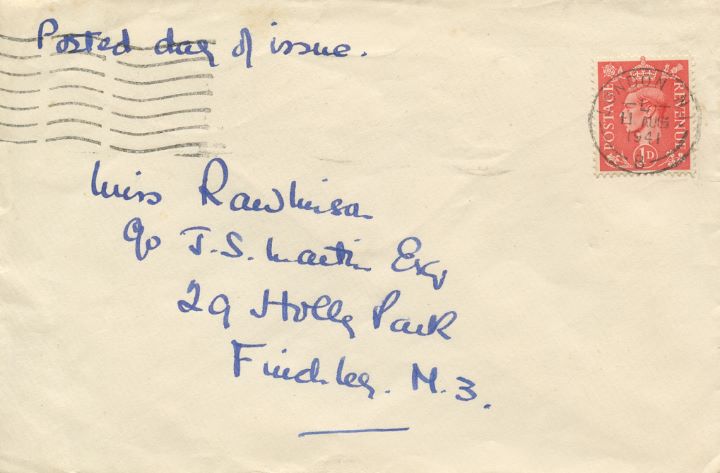 Posted day of issue.
POSTAGE REVENUE
1D
LONDON
11 AUG
1941
Miss Rawlinson
c/o J.S. Martin Esq
29 Holly Park
Finchley. N.3.